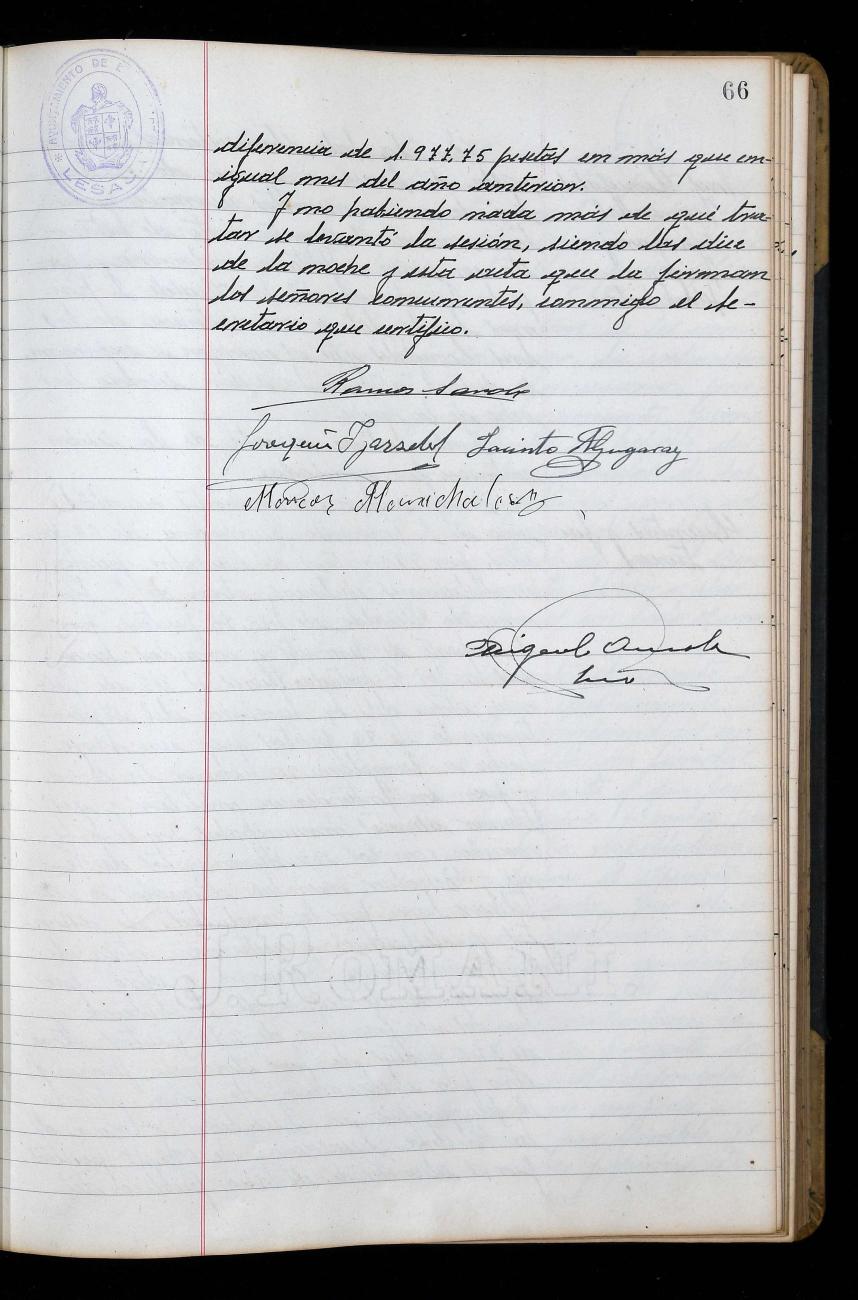 66
AYUNTAMIENTO DE
LESACA
diferencia de 1.977,75 pesetas en más que en-
igual mes del año anterior.
Y no habiendo nada más de qué tra-
tar se levantó la sesión, siendo las diez
de la noche y esta acta que la firman
los señores concurrentes, conmigo el Se-
cretario que certifico.
Ramos
Joaquín
Jacinto
Marcos
Miguel